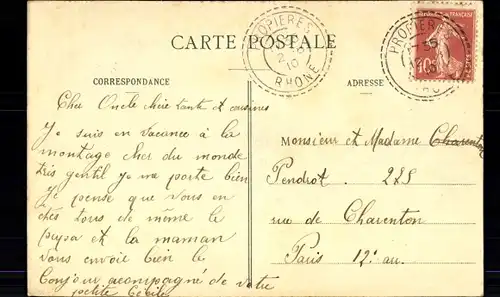 CARTE POSTALE
PROPIÈRES
2
10
RHONE
PROPIÈRES
10
CORRESPONDANCE
ADRESSE
Cher Oncle chère tante et cousines
Je suis en vacance à la
montagne cher du monde
très gentil je me porte bien
Je pense que vous en
êtes tous de même le
papa et la maman
vous envoie bien le
Bonjour acompagné de votre
petite Cécile
Monsieur et Madame Charenton
Pendrot . 225
rue de Charenton
Paris 12e au.